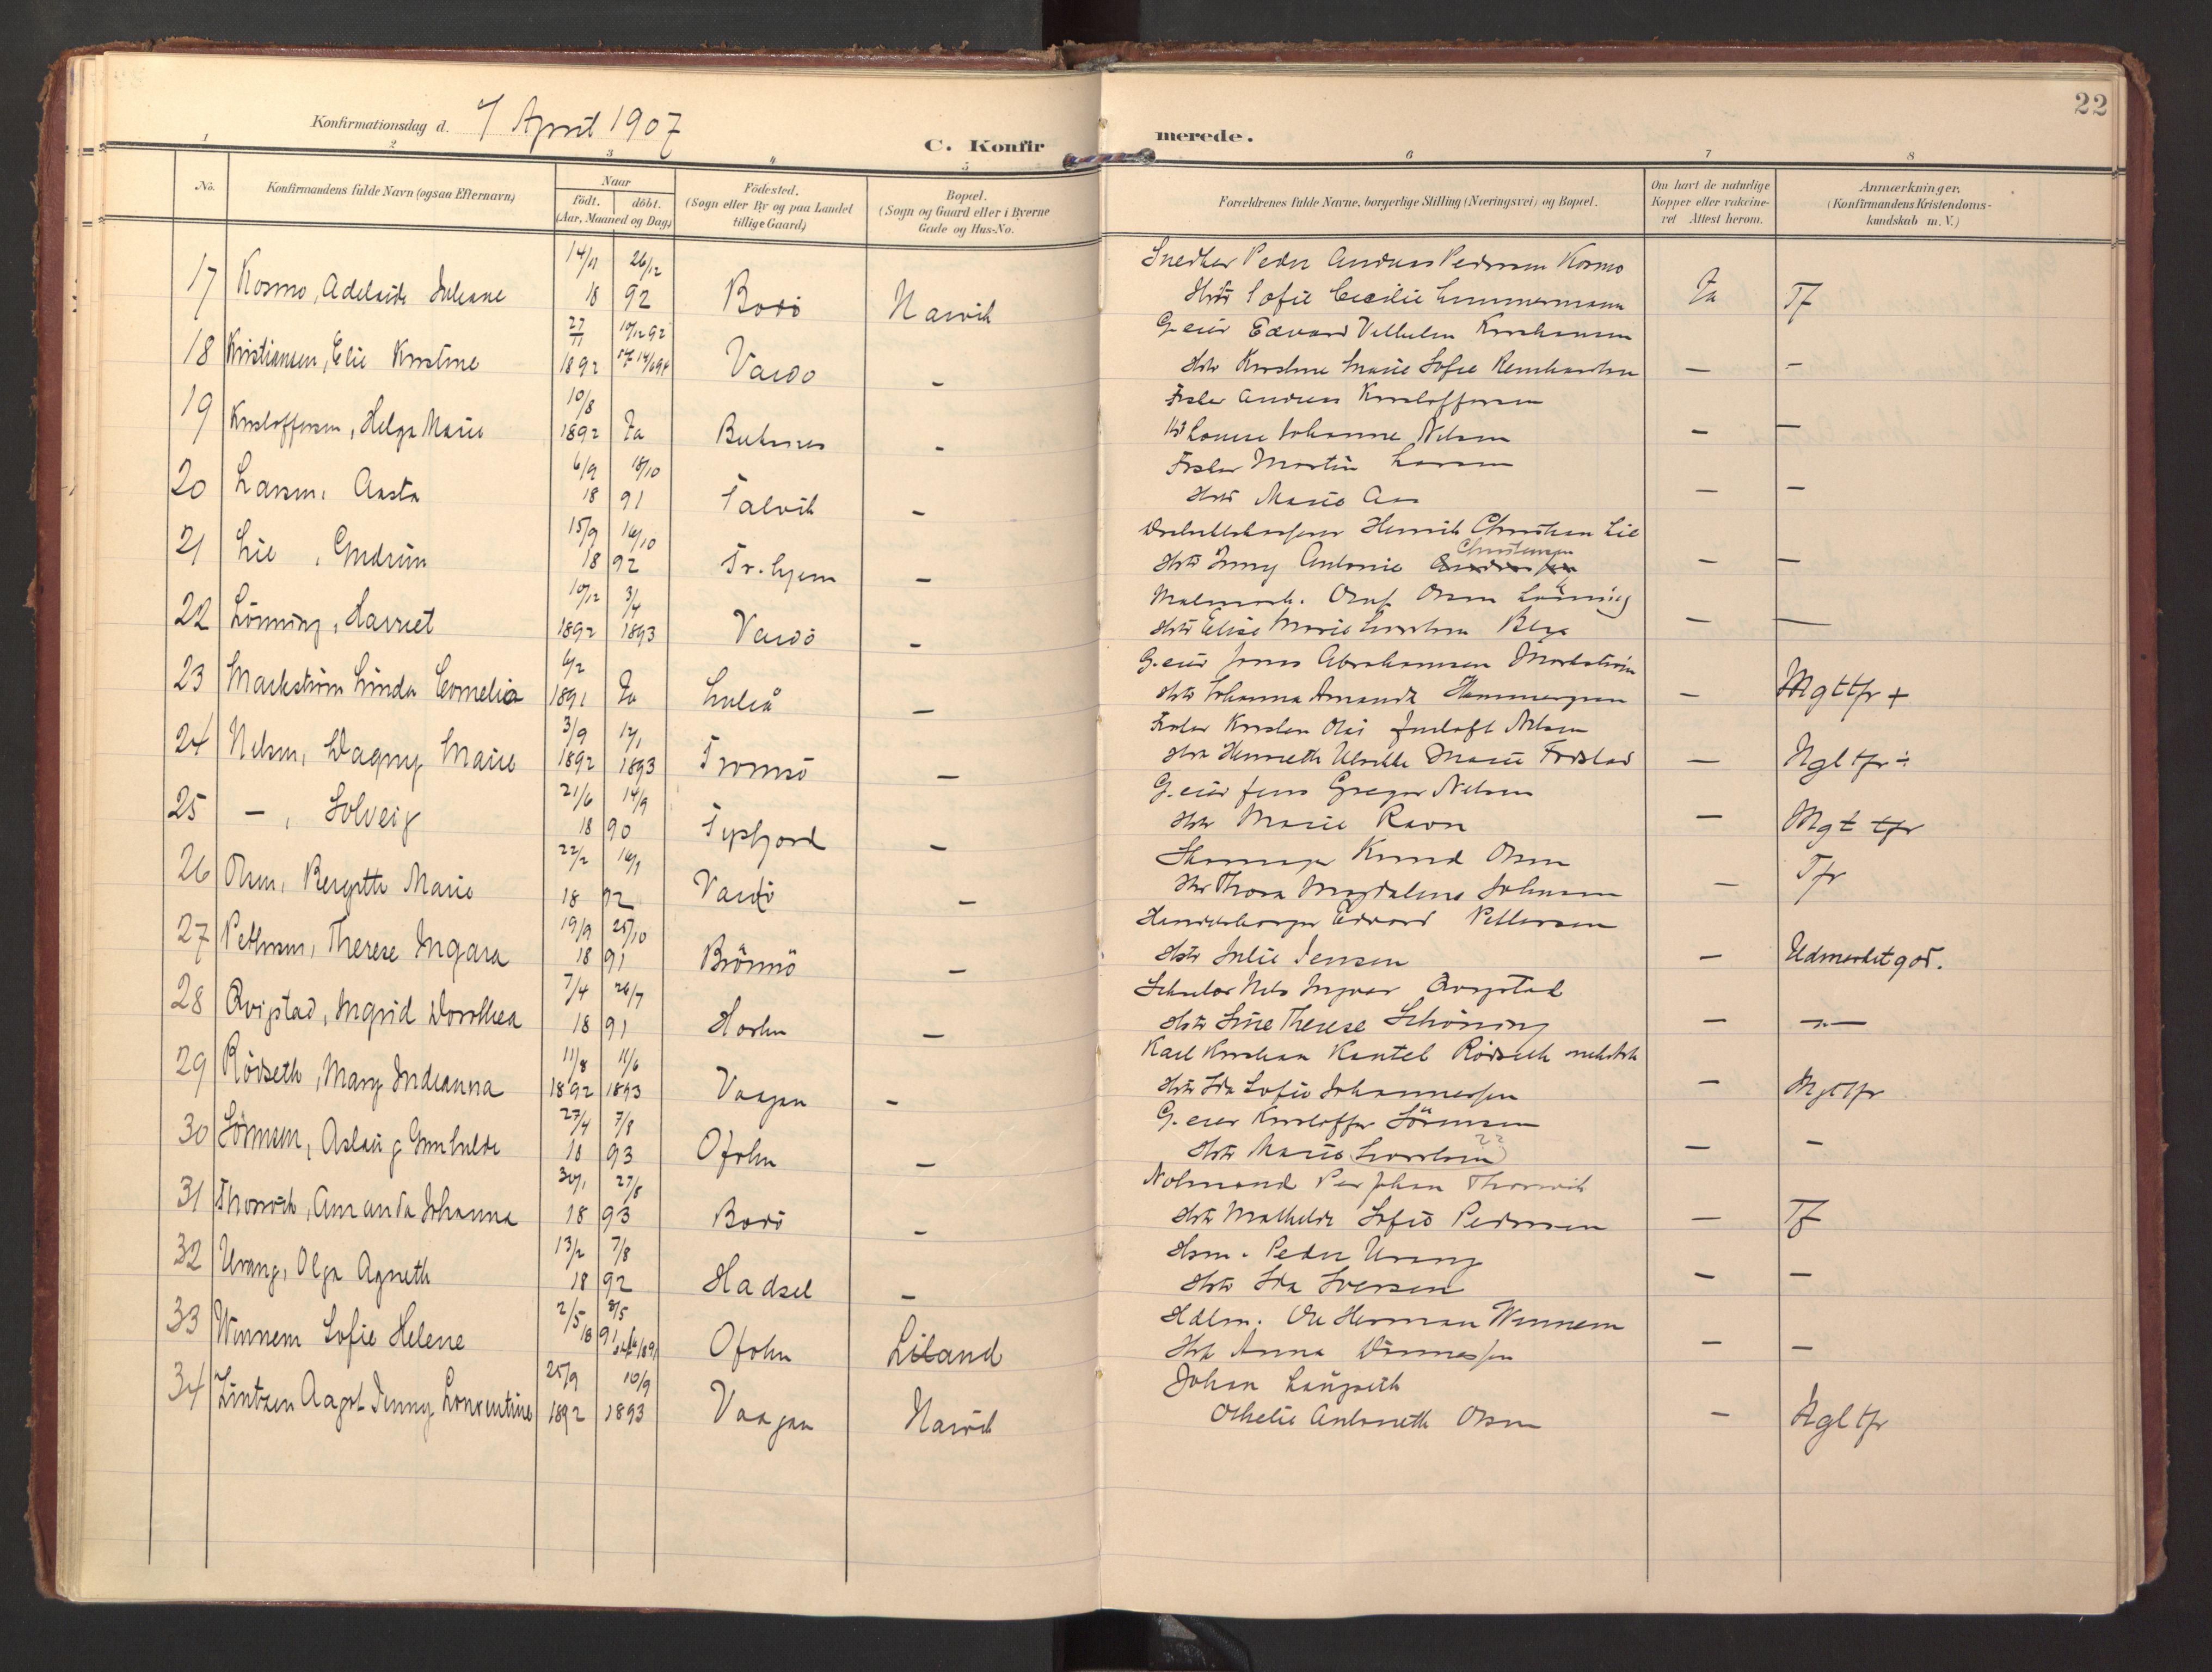 22
Konfirmationsdag d. 7 April 1907
C. Konfirmerede.
1 2 3 4 5 6 7 8
No. Konfirmandens fulde Navn (ogsaa Efternavn) Naar født. døbt. (Aar, Maaned og Dag) Födested. (Sogn eller By og paa Landet tillige Gaard) Bopæl. (Sogn og Gaard eller i Byerne Gade og Hus-No. Forældrenes fulde Navne, borgerlige Stilling (Næringsvei) og Bopæl. Om havt de naturlige Kopper eller vaccineret Attest herom. Anmærkninger. (Konfirmandens Kristendomskundskab m. V.)
17 Kosmo, Adelaide Juliane 14/11 26/12 18 92 Bodö Narvik Snedker Peder Andreas Pedersen Kosmo
Hstr Sofie Cecilie Limmermann Ja Tf
18 Kristiansen, Elie Kristine 27/11 1892 10/12 92 Vardö - G.eier Edvard Vilhelm Kristiansen
Hstr Kristine Marie Sofie Reinhardtsen - -
19 Kristoffersen, Helga Marie 10/8 1892 Ja Buksnes - Fisker Andreas Kristoffersen
Louise Johanne Nilsen - -
20 Larsen, Aasta 6/9 18/10 18 91 Talvik - Fisker Martin Larsen
Hstr Marie Aas - -
21 Lie, Gudrun 15/9 16/10 18 92 Tr.hjem - Henrik Christian Lie
Hstr Jenny Antonie Christensen - -
22 Lönning, Harriet 10/12 3/4 1892 1893 Vardö - Oluf Olsen Lönning
Hstr Elise Marie Berg - -
23 Markström Linda Cornelia 6/2 1891 Ja Luleå - G.eier Jonas Abrahamsen Markström
Hstr Johanna Amanda Hammergren - Mgttfr +
24 Nilsen, Dagny Marie 3/9 1892 1893 Tromsö - Fisker Kristen Olai Nilsen
Hstr Henrette Ulrikke Marie - Ngltfr ÷
25 -, Solveig 21/6 14/9 18 90 Tysfjord - G.eier Jens Gregor Nilsen
Hstr Marie Ravn - Mgt tfr
26 Olsen, Bergitte Marie 22/2 18 92 Vardö - Knud Olsen
Hstr Thora Magdalene Johnsen - Tfr
27 Pettersen, Therese Ingara 19/9 25/10 18 91 Brönnö - Edvard Pettersen
Hstr Julie Jensen - Udmerket god.
28 Qvigstad, Ingrid Dorothea 7/4 26/7 18 91 Hasten - Nils Ingvar Qvigstad
Hstr Line Therese Schöning - -
29 Rödseth, Mary Indianna 11/8 11/6 1892 1893 Vaagan - Karl Kristian Kantel Rödseth
Hstr Ida Sofie Johannessen - Ngltfr
30 Sörensen, Aslaug Gunhilde 27/4 7/8 18 93 Ofoten - G.eier Kristoffer Sörensen
Hstr Marie - -
31 Thorsvik, Amanda Johanna 30/1 27/8 18 93 Bodö - Notmand Per Johan Thorsvik
Hstr Mathilde Sofie Pedersen - Tf
32 Urang, Olga Agneth 13/2 7/8 18 92 Hadsel - Hsm. Peder Urang
Hstr Ida Iversen - -
33 Winnem Sofie Helene 2/5 18 91 Ofoten Liland Hdlm. Ole Herman Winnem
Hstr Anna Dinnessen - -
34 Zintzen Aagot Jenny Lorentine 25/9 10/9 1892 1893 Vaagan Narvik Johan Laugseth
Othelie Antonette Olsen - Ngltfr